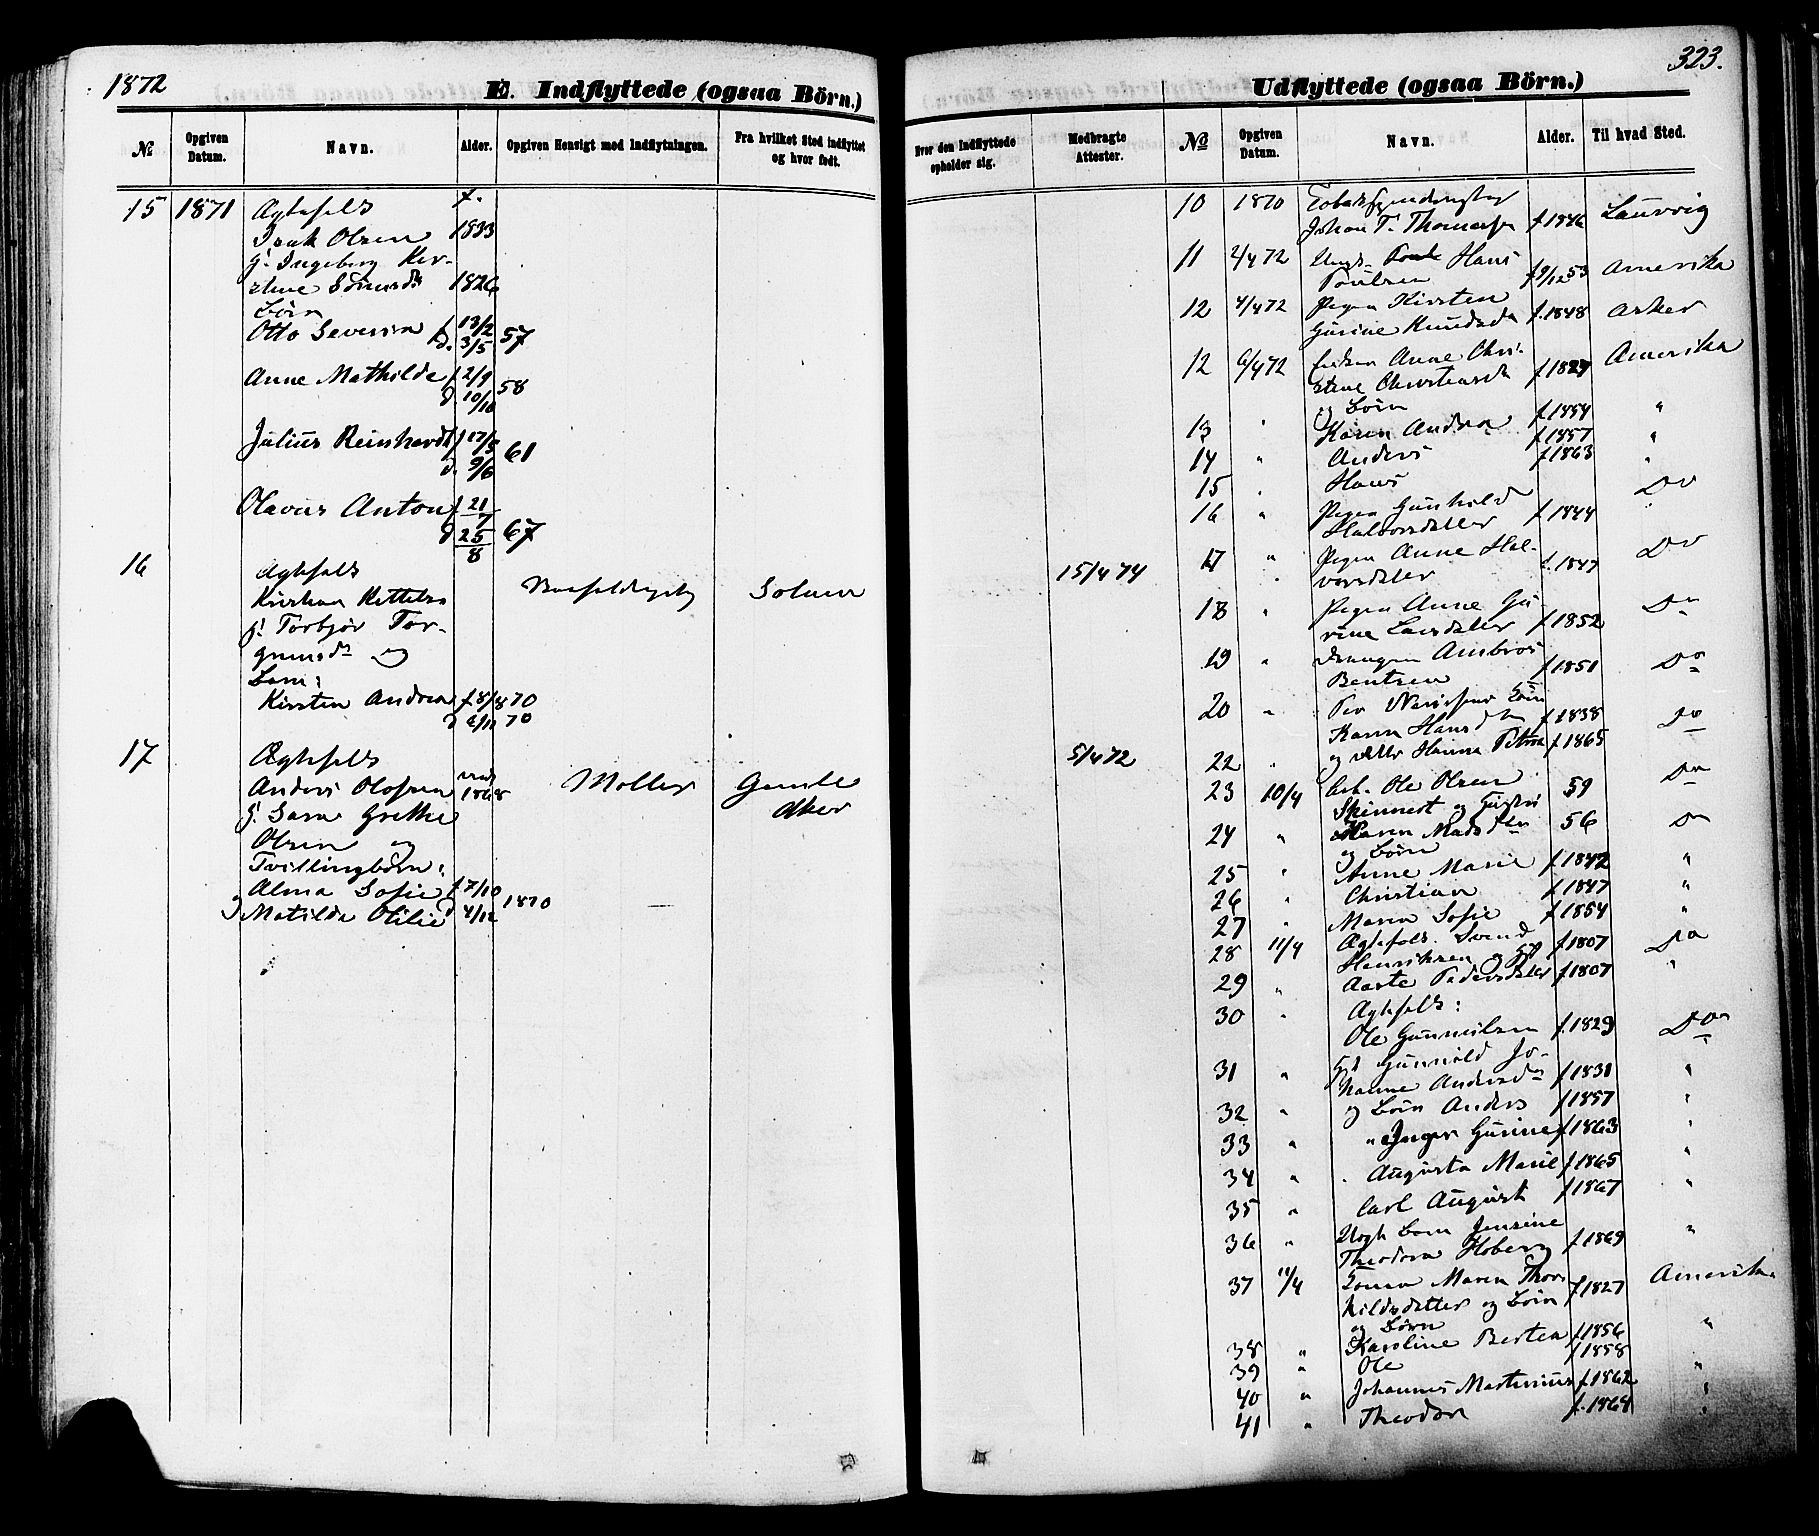 1872
E. Indflyttede (ogsaa Börn.)
№ Opgiven Datum. Navn. Alder. Opgiven Hensigt med Indflytningen. Fra hvilket Sted indflyttet og hvor født.
15 1871 Ægtefolk f.
Isak Olsen 1833
g. Ingeborg Kir-
stine 1826
Børn
Otto Severin f 13/2
d. 3/5 57
Anne Mathilde f 2/9
d 10/10 58
Julius Reinhardt f 17/3
d. 9/6 61
Olavus Anton f 21/7
d 25/8 67
16 Ægtefolk
Kristian
g. Torbjør Tor-
grimsdr og
Barn:
Kirsten Andrea f 8/8 70
d 2/11 70
17 Ægtefolk
Anders Olofsen 1868 Møller Gamle
g. Sara Grethe Aker
Olsen og
Tvillingbørn:
Alma Sofie f 7/10
og Matilde Otilie d 4/12 1870
323.
Udflyttede (ogsaa Börn.)
Hvor den Indflyttede opholder sig. Medbragte Attester. № Opgiven Datum. Navn. Alder. Til hvad Sted.
15/4 74
5/4 72
10 1870
Johan T. Thomassen f 1846 Laurvig
11 2/4 72 Ungk. Hans
Poulsen f 9/12 53 Amerika
12 4/4 72 Pigen Kirsten
Gurine Knudsdr f. 1848 Asker
12 6/4 72 Enken Anne Chri-
stine Christensdr f 1829 Amerika
og Børn
13 " Karen Andrea f. 1854 "
14 " Anders f 1857 "
15 " Hans f 1863 "
16 " Pigen Gunhild
Halvorsdatter f 1844 Do
17 " Pigen Anne Hal-
vorsdatter f. 1847 Do
18 " Pigen Anne Gu-
rine Larsdatter f 1852 Do
19 " Drengen Ambros
Bentsen f 1851 Do
20 "
Karen Hansdtr f 1838 Do
22 " og datter Hanna Petrea f 1865
23 10/4 Arb. Ole Olsen 59 Do
og Hustru
24 " Maren Madsdtr 56 Do
og Børn
25 " Anne Marie f 1842 "
26 " Christian f 1847 "
27 " Maren Sofie f 1854 "
28 11/4 Ægtefolk. Svend f 1807 Do
Henriksen og
29 " Aaste Pedersdatter f 1807 "
30 " Ægtefolk:
Ole Gunnulsen f. 1829 Do
31 " Gunnild Jo-
hanne Andersdr f 1831 "
32 " og Børn Anders f 1857 "
33 " " Inger Gurine f 1863 "
34 " Augusta Marie f 1865 "
35 " Carl August f 1867 "
36 " Uægte Barn Jensine
Theodora Hoberg f 1869 "
37 11/4 Maren Thor-
kildsdatter og Børn f 1827 Amerika
og Børn
38 " Karoline Bertea f 1856 "
39 " Ole f 1858 "
40 " Johannes Martinius f 1862 "
41 " Theodor f. 1864 "